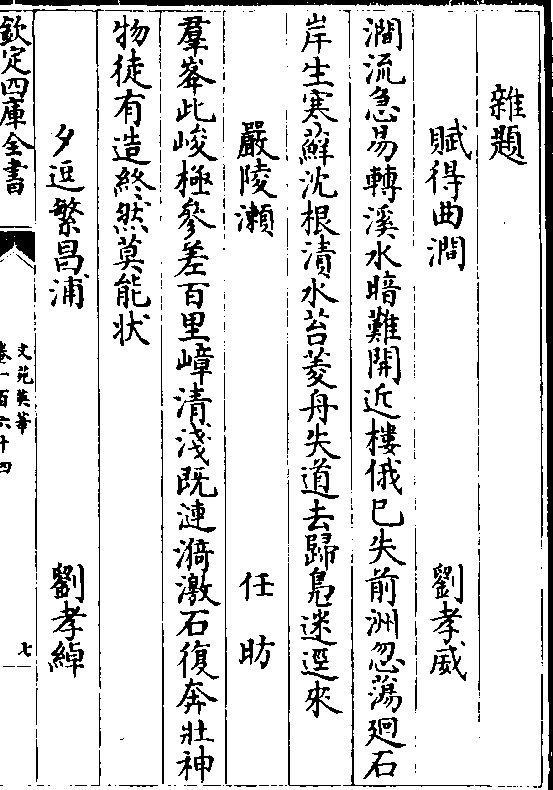 雜題
賦得曲澗 劉孝威
澗流急易轉溪水暗難開近樓俄已失前洲忽蕩廻石
岸生寒蘚沈根漬水苔菱舟失道去歸鳧迷逕來
嚴陵瀨 任昉
羣峯此峻極參差百里嶂清淺既漣漪激石復奔壯神
物徒有造終然莫能狀
夕逗繁昌浦 劉孝綽
欽定四庫全書
文苑英華
卷一百六十四
七